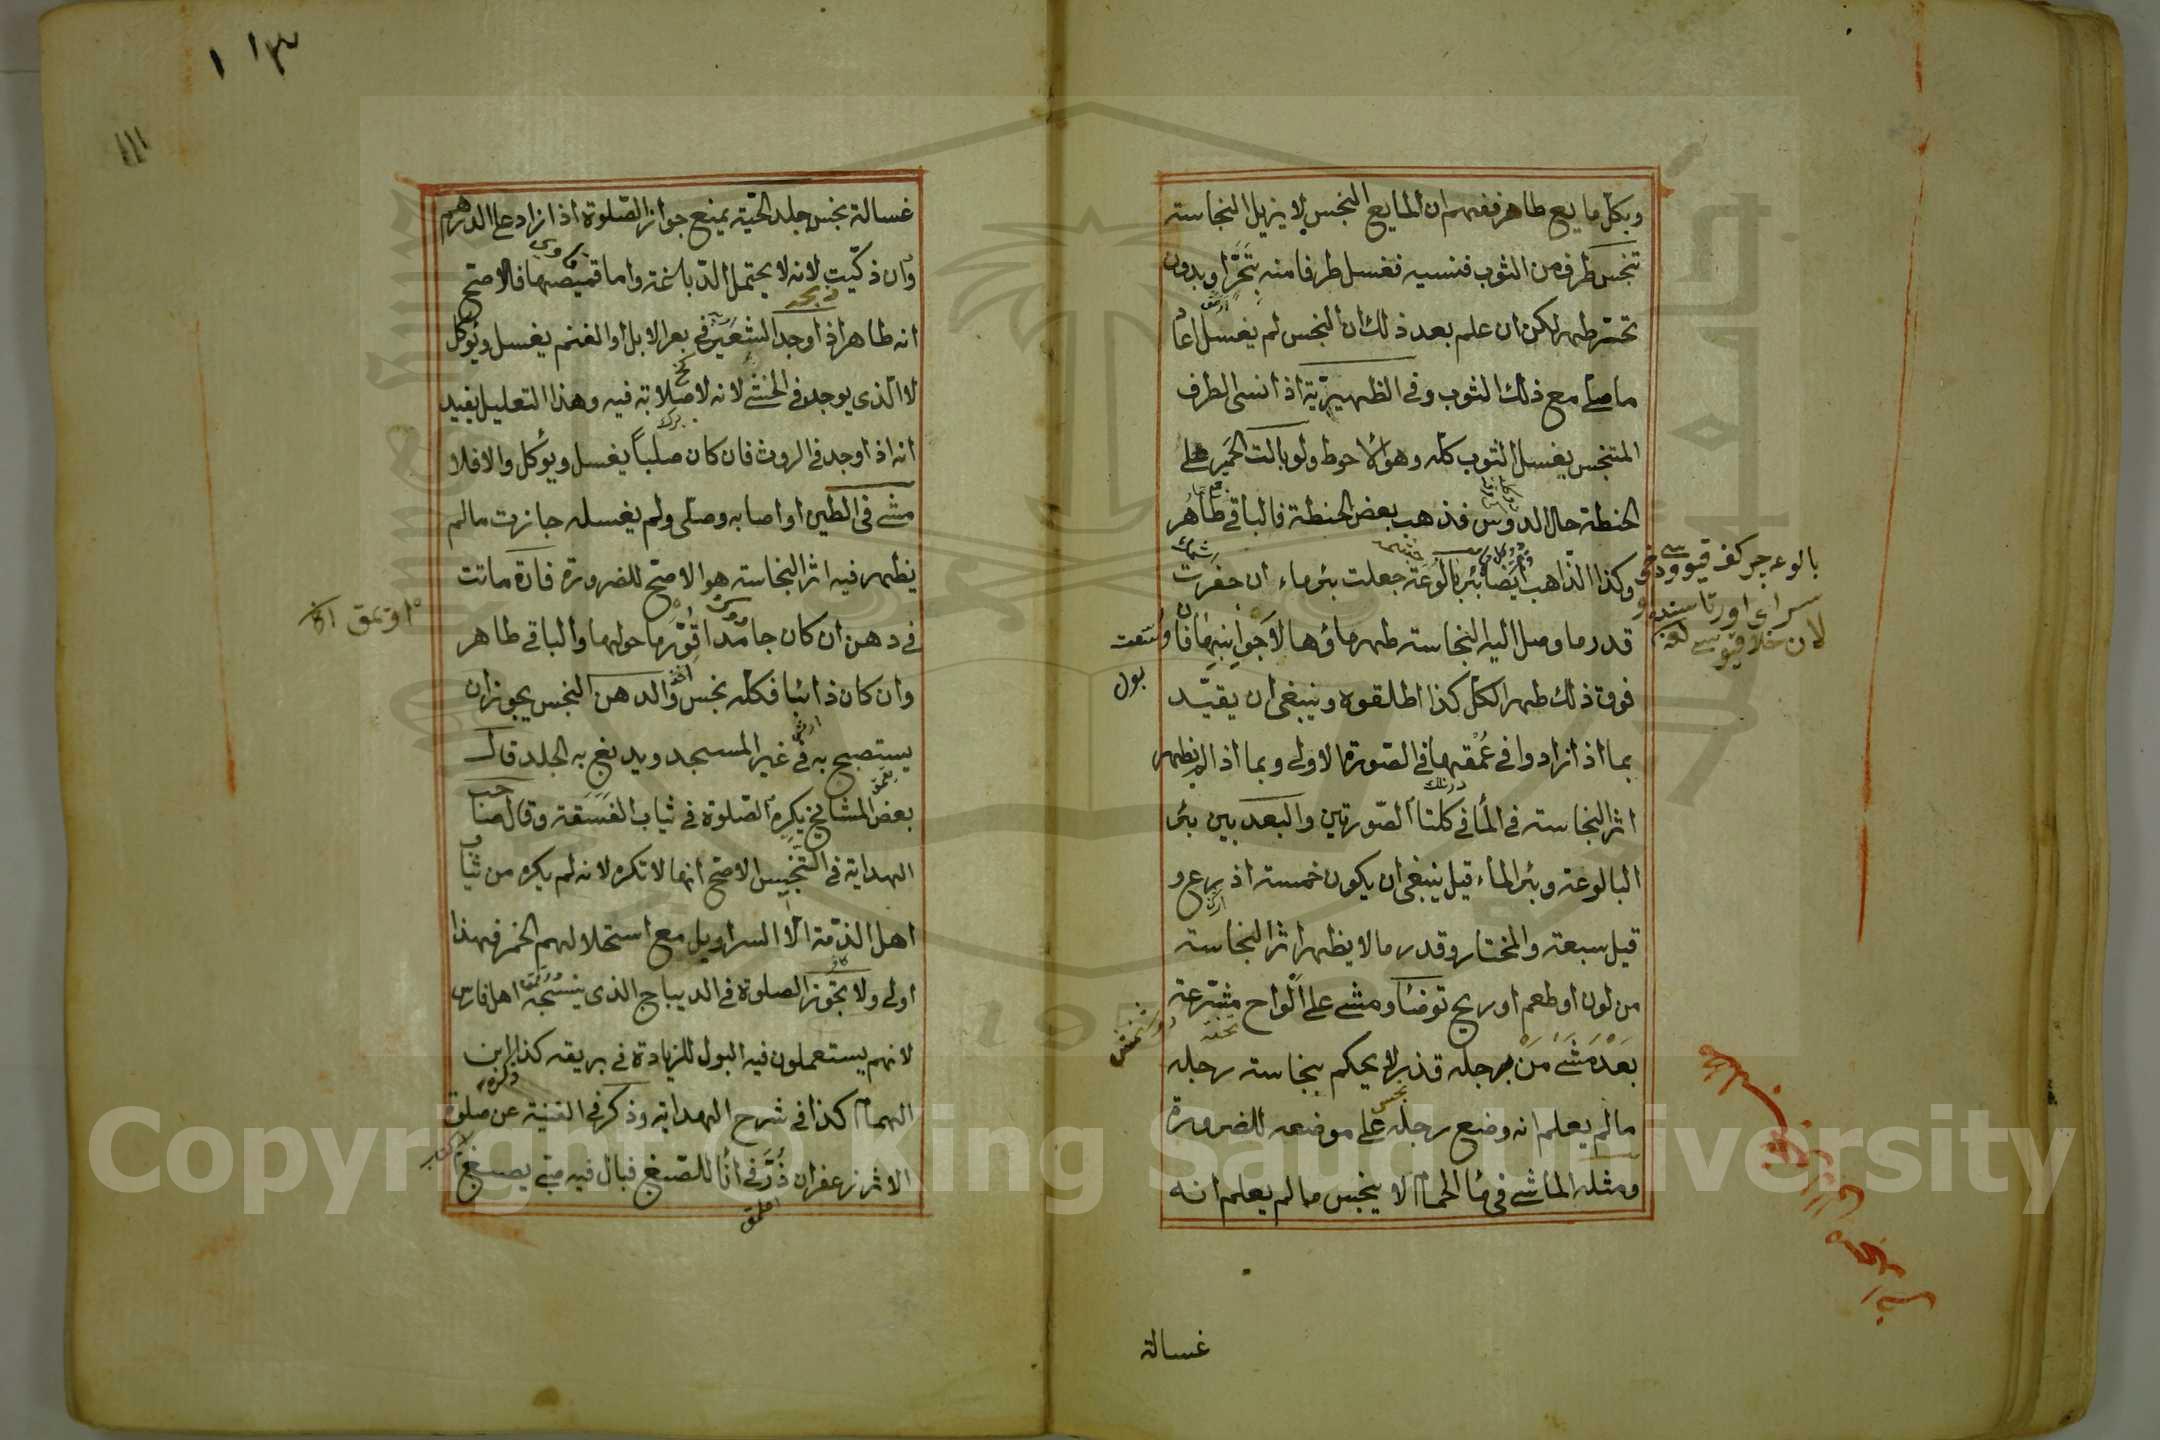 وبكل مايع طاهر ففهم ان المايع النجس لا يزيل النجاسته
تنجس طرف من الثوب فنسيه فغسل طرفا منه بتحرّ او بدون
تحتر طهر لكن ان علم بعد ذلك ان النجس لم يغسل اعا
ما صلى مع ذلك الثوب وفى الظهيريّة اذا نسى الطرف
المتنجس يغسل الثوب كله وهو الاحوط ولو بالت الحمير على
الحنطة حال الدوس فذهب بعض الحنطة فالباقى طاهر
وكذا الذّاهب ايضا بئر بالوعة جعلت بئرماء ان حفرت
قدر ما وصل اليه النجاسته طهر ماؤها لا جوانبها فان وسّعت
فوق ذلك طهر الكل كذا اطلقوه وينبغى ان يقيّد
بما اذا زادوا فى عُمْقها فى الصّورة الاولى وبما اذا لم يظهر
اثر النجاسته فى الماء فى كلتا الصّورتين والبعد بين بئر
البالوعة وبئر الماء قيل ينبغى ان يكون خمسته اذرع و
قيل سبعة والمختار وقدر ما لا يظهر اثر النجاسته
من لون او طعم او ريح توضا ومشى على الواح مشرعة
بَعْدَ مَشْىِ مَنْ برجله قذر لا يحكم بنجاسته رجله
مالم يعلم انه وضع رجله على موضعه للضرورة
ومثله الماشى فى ماء الحمام لا ينجس مالم يعلم انه
غسالة
بول
١١٣
١١١
غسالة نجس جلد الحيّة يمنع جواز الصّلوة اذا زاد على الدرهم
وان ذكّيت لانه لا يحتمل الدّباغة واما قميصها فالاصح
انه طاهر اذا وجد الشعير فى بعر الابل او الغنم يغسل ويؤكل
لا الّذى يوجد فى الخثى لانه لا صلابة فيه وهذا التعليل يفيد
انه اذا وجد فى الروث فان كان صلباً يغسل ويؤكل والا فلا
مشى فى الطين او اصابه وصلى ولم يغسله جازت مالم
يظهر فيه اثر النجاسته هو الاصح للضرورة فارة ماتت
فى دهن ان كان جامدا قُوّر ما حولها والباقى طاهر
وان كان ذائبا فكله نجس والدهن النجس يجوز ان
يستصبح به فى غير المسجد ويدبغ به الجلد قال
بعض المشايخ يكره الصّلوة فى ثياب الفَسَقة وقال صاحب
الهداية فى التّجنيس الاصح انها لا تكره لانه لم يكره من ثياب
اهل الذّمة الّا السراويل مع استحلالهم الخمر فهذا
اولى ولا تجوز الصلوة فى الديباج الذى ينسُجُه اهل فارس
لانهم يستعملون فيه البول للزيادة فى بريقه كذا ابن
الهمام كذا فى شرح الهداية وذكر فى القنية عن صلوة
الاثر زعفران ذُرَّ فى اناء للصّبغ فبال فيه صبى يصبغ
Copyright © King Saud University